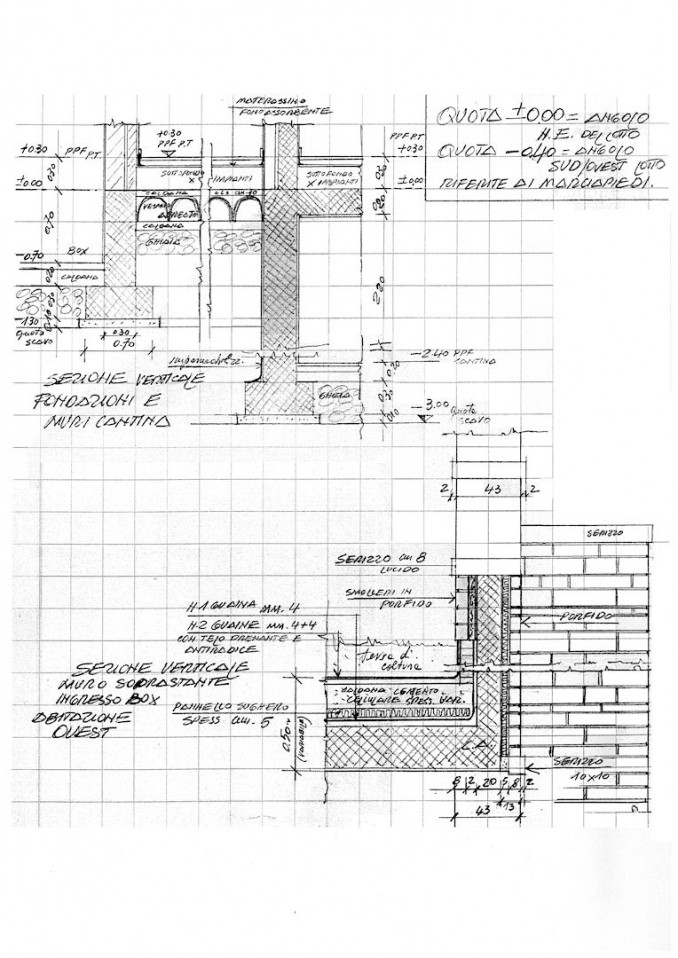 MATERASSINO
FONOASSORBENTE
QUOTA ±0.00 = ANGOLO
N.E. DEL LOTTO
QUOTA -0.40 = ANGOLO
SUD/OVEST LOTTO
RIFERITE AI MARCIAPIEDI.
+0.30 PPF P.T.
+0.30
PPF P.T
PPF P.T
+0.30
SOTTOFONDO
X IMPIANTI
SOTTOFONDO
X IMPIANTI
±0.00
±0.00
CALDANA
VESPAIO
AERATO
CALDANA
GHIAIA
0.70
-0.70
BOX
CALDANA
-1.30
Quota
scavo
0.30
0.70
2.20
-2.40 PPF
CANTINA
GHIAIA
-3.00 Quota
scavo
SEZIONE VERTICALE
FONDAZIONI E
MURI CANTINA
2 43 2
SERIZZO
SERIZZO cm 8
LUCIDO
SMOLLERI IN
PORFIDO
PORFIDO
N.1 GUAINA MM. 4
N.2 GUAINE MM. 4+4
CON TELO DRENANTE E
ANTIRADICE
terra di
coltura
SEZIONE VERTICALE
MURO SOPRASTANTE
INGRESSO BOX
ABITAZIONE
OVEST
PANNELLO SUGHERO
SPESS cm. 5
CALDANA CEMENTO
CELLULARE SPESS. VAR.
0.50
(VARIABILE)
C.A.
SERIZZO
10x10
8 2 20 5 8 2
13
43